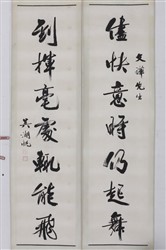 文 先生
儘快意時仍起舞
到揮毫處輒能飛
吳湖帆